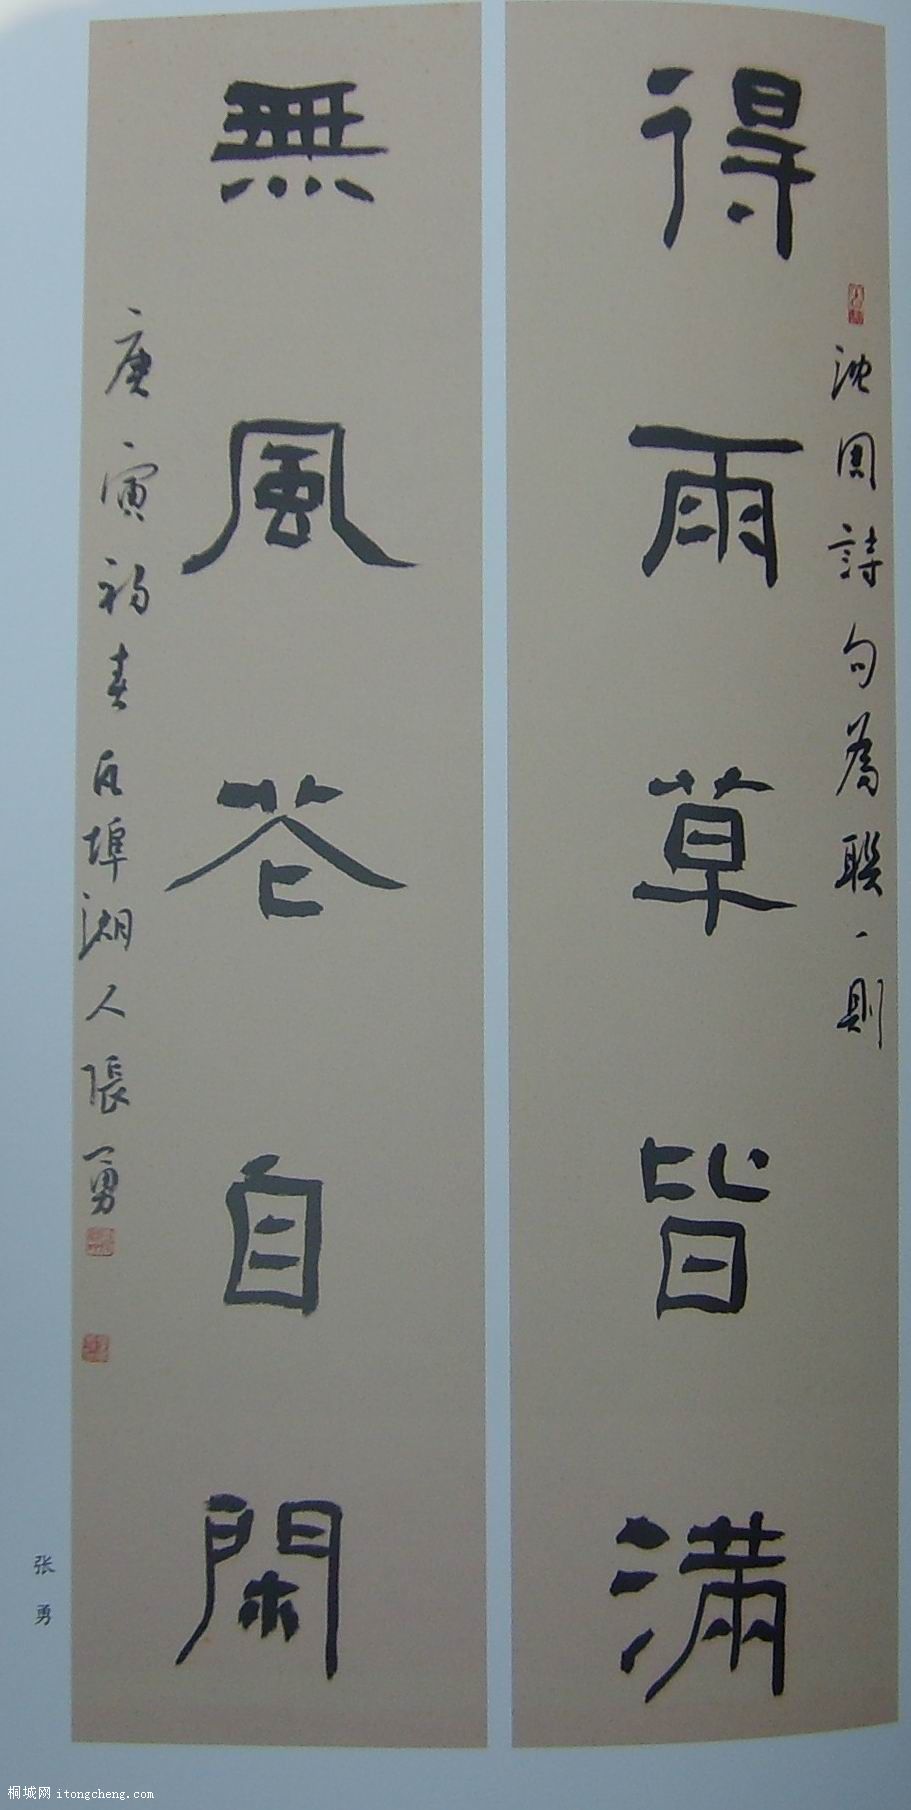 得雨草皆滿
沈周詩句為聯一則
無風花自閑
庚寅初春瓦埠湖人張勇
张勇
桐城网 itongcheng.com